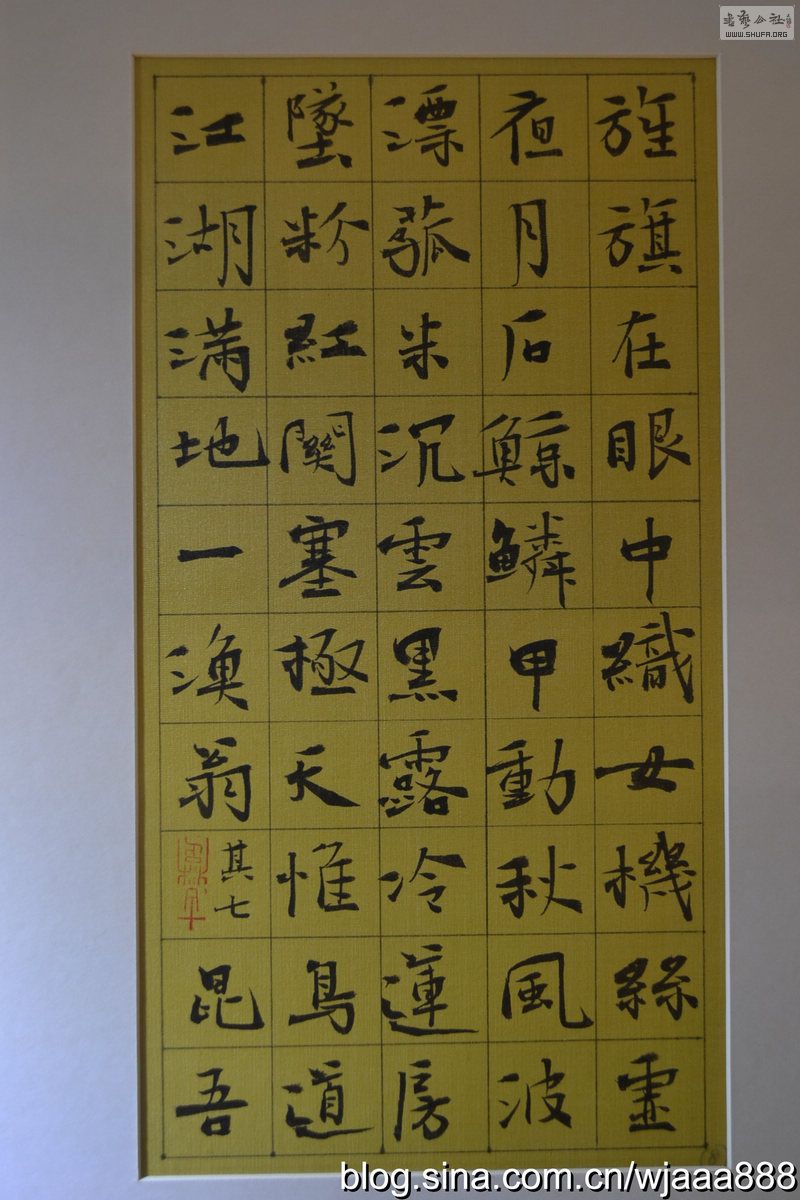 旌旗在眼中織女機絲虛
夜月石鯨鱗甲動秋風波
漂菰米沉雲黑露冷蓮房
墜粉紅關塞極天惟鳥道
江湖满地一漁翁
其七
昆吾
書藝公社
WWW.SHUFA.ORG
blog.sina.com.cn/wjaaa888